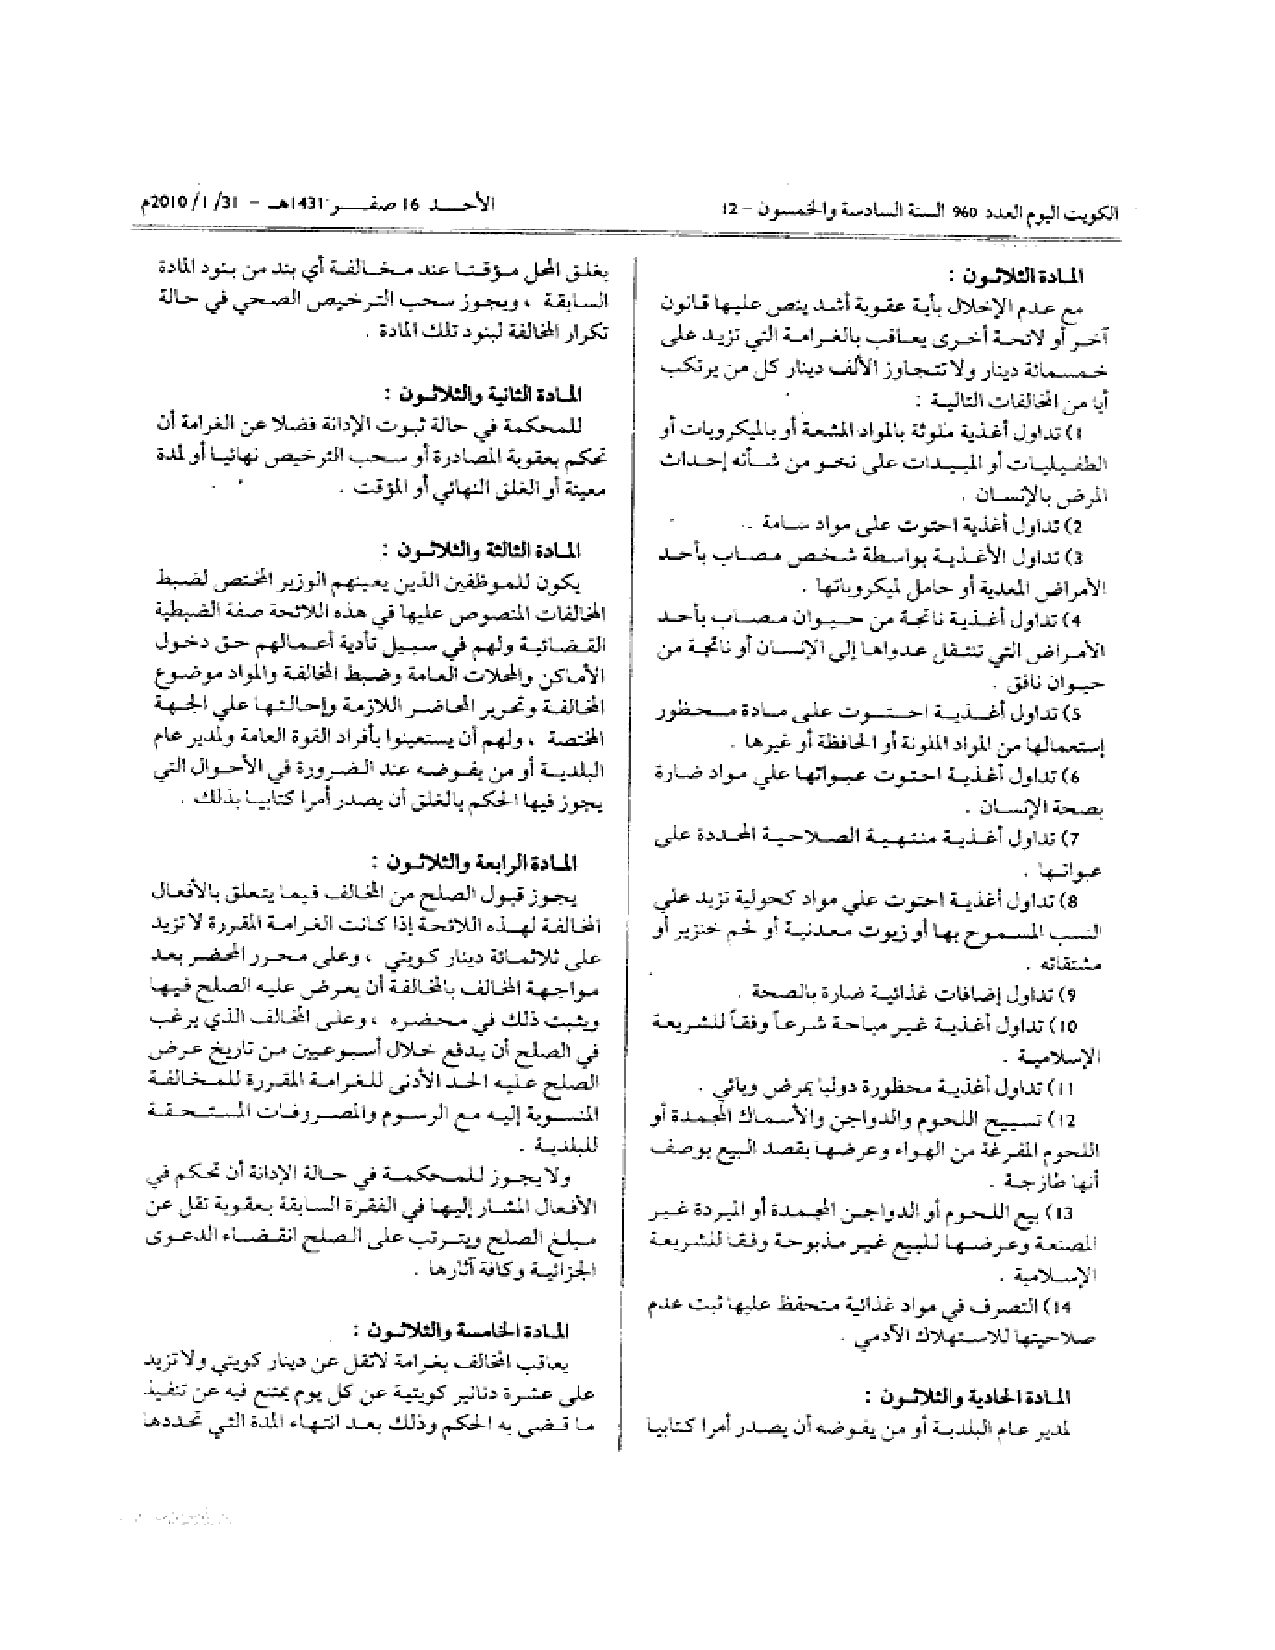 الكويت اليوم العدد 960 السنة السادسة والخمسون - 12
الأحد 16 صفر 1431هـ - 31/ 1/ 2010م
المادة الثلاثون :
مع عدم الإخلال بأية عقوبة أشد ينص عليها قانون
آخر أو لائحة أخرى يعاقب بالغرامة التي تزيد على
خمسمائة دينار ولا تتجاوز الألف دينار كل من يرتكب
أيا من المخالفات التالية :
1) تداول أغذية ملوثة بالمواد المشعة أو بالميكروبات أو
الطفيليات أو المبيدات على نحو من شأنه إحداث
المرض بالإنسان .
2) تداول أغذية احتوت على مواد سامة .
3) تداول الأغذية بواسطة شخص مصاب بأحد
الأمراض المعدية أو حامل لميكروباتها .
4) تداول أغذية ناتجة من حيوان مصاب بأحد
الأمراض التي تنتقل عدواها إلى الإنسان أو ناتجة من
حيوان نافق .
5) تداول أغذية احتوت على مادة محظور
إستعمالها من المواد الملونة أو الحافظة أو غيرها .
6) تداول أغذية احتوت عبواتها على مواد ضارة
بصحة الإنسان .
7) تداول أغذية منتهية الصلاحية المحددة على
عبواتها .
8) تداول أغذية احتوت على مواد كحولية تزيد على
النسب المسموح بها أو زيوت معدنية أو لحم خنزير أو
مشتقاته .
9) تداول إضافات غذائية ضارة بالصحة .
10) تداول أغذية غير مباحة شرعاً وفقاً للشريعة
الإسلامية .
11) تداول أغذية محظورة دوليا بمرض وبائي .
12) تسييح اللحوم والدواجن والأسماك المجمدة أو
اللحوم المفرغة من الهواء وعرضها بقصد البيع بوصف
أنها طازجة .
13) بيع اللحوم أو الدواجن المجمدة أو المبردة غير
المصنعة وعرضها للبيع غير مذبوحة وفقا للشريعة
الإسلامية .
14) التصرف في مواد غذائية متحفظ عليها ثبت عدم
صلاحيتها للاستهلاك الآدمي .
المادة الحادية والثلاثون :
لمدير عام البلدية أو من يفوضه أن يصدر أمرا كتابيا
بغلق المحل مؤقتا عند مخالفة أي بند من بنود المادة
السابقة ، ويجوز سحب الترخيص الصحي في حالة
تكرار المخالفة لبنود تلك المادة .
المادة الثانية والثلاثون :
للمحكمة في حالة ثبوت الإدانة فضلا عن الغرامة أن
تحكم بعقوبة المصادرة أو سحب الترخيص نهائيا أو لمدة
معينة أو الغلق النهائي أو المؤقت .
المادة الثالثة والثلاثون :
يكون للموظفين الذين يعينهم الوزير المختص لضبط
المخالفات المنصوص عليها في هذه اللائحة صفة الضبطية
القضائية ولهم في سبيل تأدية أعمالهم حق دخول
الأماكن والمحلات العامة وضبط المخالفة والمواد موضوع
المخالفة وتحرير المحاضر اللازمة وإحالتها على الجهة
المختصة ، ولهم أن يستعينوا بأفراد القوة العامة ولمدير عام
البلدية أو من يفوضه عند الضرورة في الأحوال التي
يجوز فيها الحكم بالغلق أن يصدر أمرا كتابيا بذلك .
المادة الرابعة والثلاثون :
يجوز قبول الصلح من المخالف فيما يتعلق بالأفعال
المخالفة لهذه اللائحة إذا كانت الغرامة المقررة لا تزيد
على ثلاثمائة دينار كويتي ، وعلى محرر المحضر بعد
مواجهة المخالف بالمخالفة أن يعرض عليه الصلح فيها
ويثبت ذلك في محضره ، وعلى المخالف الذي يرغب
في الصلح أن يدفع خلال أسبوعين من تاريخ عرض
الصلح عليه الحد الأدنى للغرامة المقررة للمخالفة
المنسوبة إليه مع الرسوم والمصروفات المستحقة
للبلدية .
ولا يجوز للمحكمة في حالة الإدانة أن تحكم في
الأفعال المشار إليها في الفقرة السابقة بعقوبة تقل عن
مبلغ الصلح ويترتب على الصلح انقضاء الدعوى
الجزائية وكافة آثارها .
المادة الخامسة والثلاثون :
يعاقب المخالف بغرامة لاتقل عن دينار كويتي ولا تزيد
على عشرة دنانير كويتية عن كل يوم يمتنع فيه عن تنفيذ
ما قضى به الحكم وذلك بعد انتهاء المدة التي تحددها